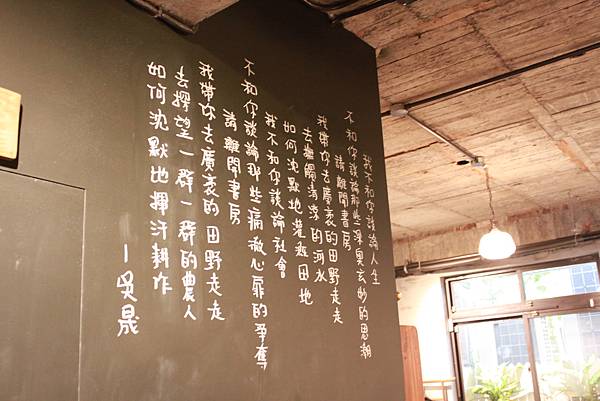 我不和你談論人生
不和你談論那些深奧玄妙的思潮
請離開書房
我帶你去廣袤的田野走走
去撫觸清涼的河水
如何沈默地灌溉田地
我不和你談論社會
不和你談論那些痛徹心扉的爭奪
請離開書房
我帶你去廣袤的田野走走
去探望一群一群的農人
如何沈默地揮汗耕作
－吳晟